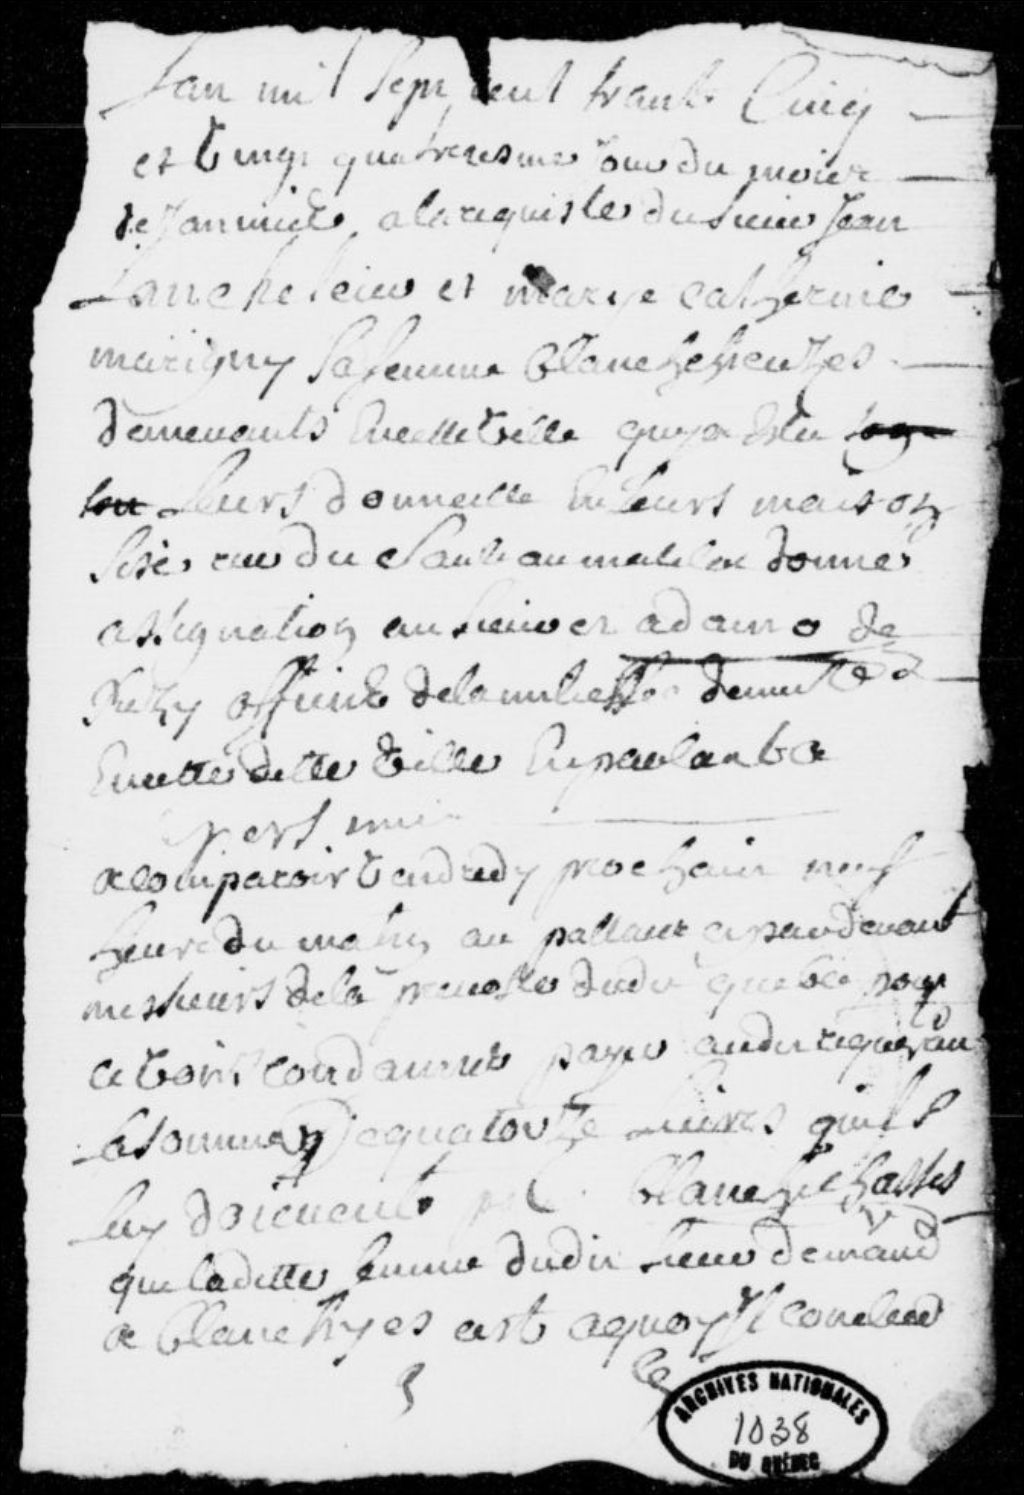 Lan mil sept cent trante Cinq
et vingt quatriesme Jour du moier
de Janvier a la requiste du sieur Jean
et marye catherine
marigny Sa femme Blanchesheuzes
demeurants En cette ville quy a Eslu
leurs domicille En leurs maison
Size rue du Sault au matelot donné
assignation au sieur adamo de
officié de la milisse demeurt
En cette ditte ville En parlant a
a Comparoir vendredy prochain neuf
heure du matin au pallais et par devant
messieurs de la prevosté dudit quebec pour
ce voir condamner payer audit requerant
la somme de quatorze livres quils
luy doivent blanchichasses
que laditte femme dudit sieur demand
a blanchyes est a quoy Il conclud
ARCHIVES NATIONALES
1038
DU QUÉBEC